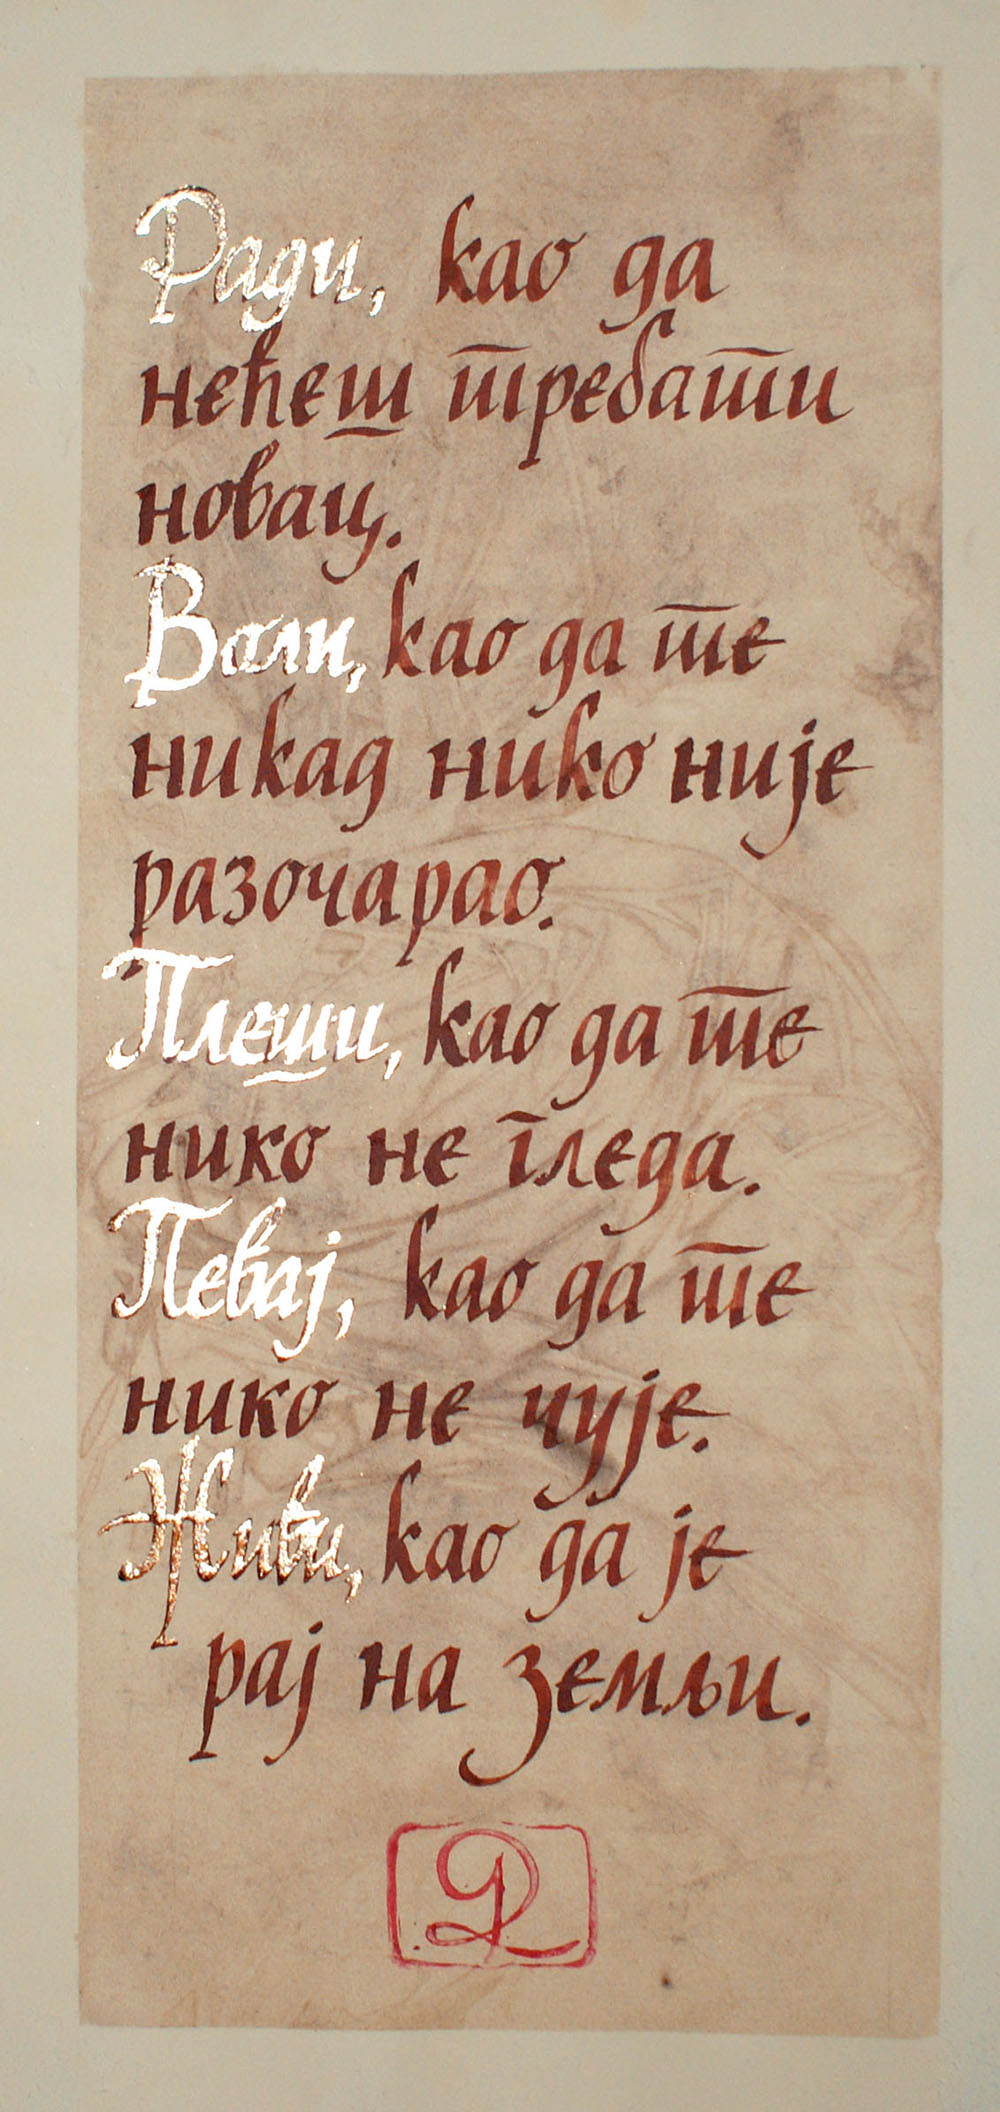 Ради, као да
нећеш требати
новац.
Воли, као да те
никад нико није
разочарао.
Плеши, као да те
нико не гледа.
Певај, као да те
нико не чује.
Живи, као да је
рај на земљи.